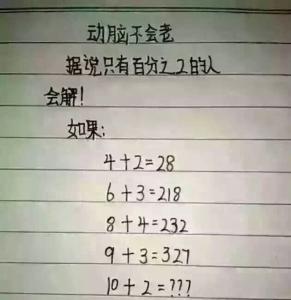 动脑不会老
据说只有百分之2的人
会解!
如果:
4+2=28
6+3=218
8+4=232
9+3=327
10+2=???